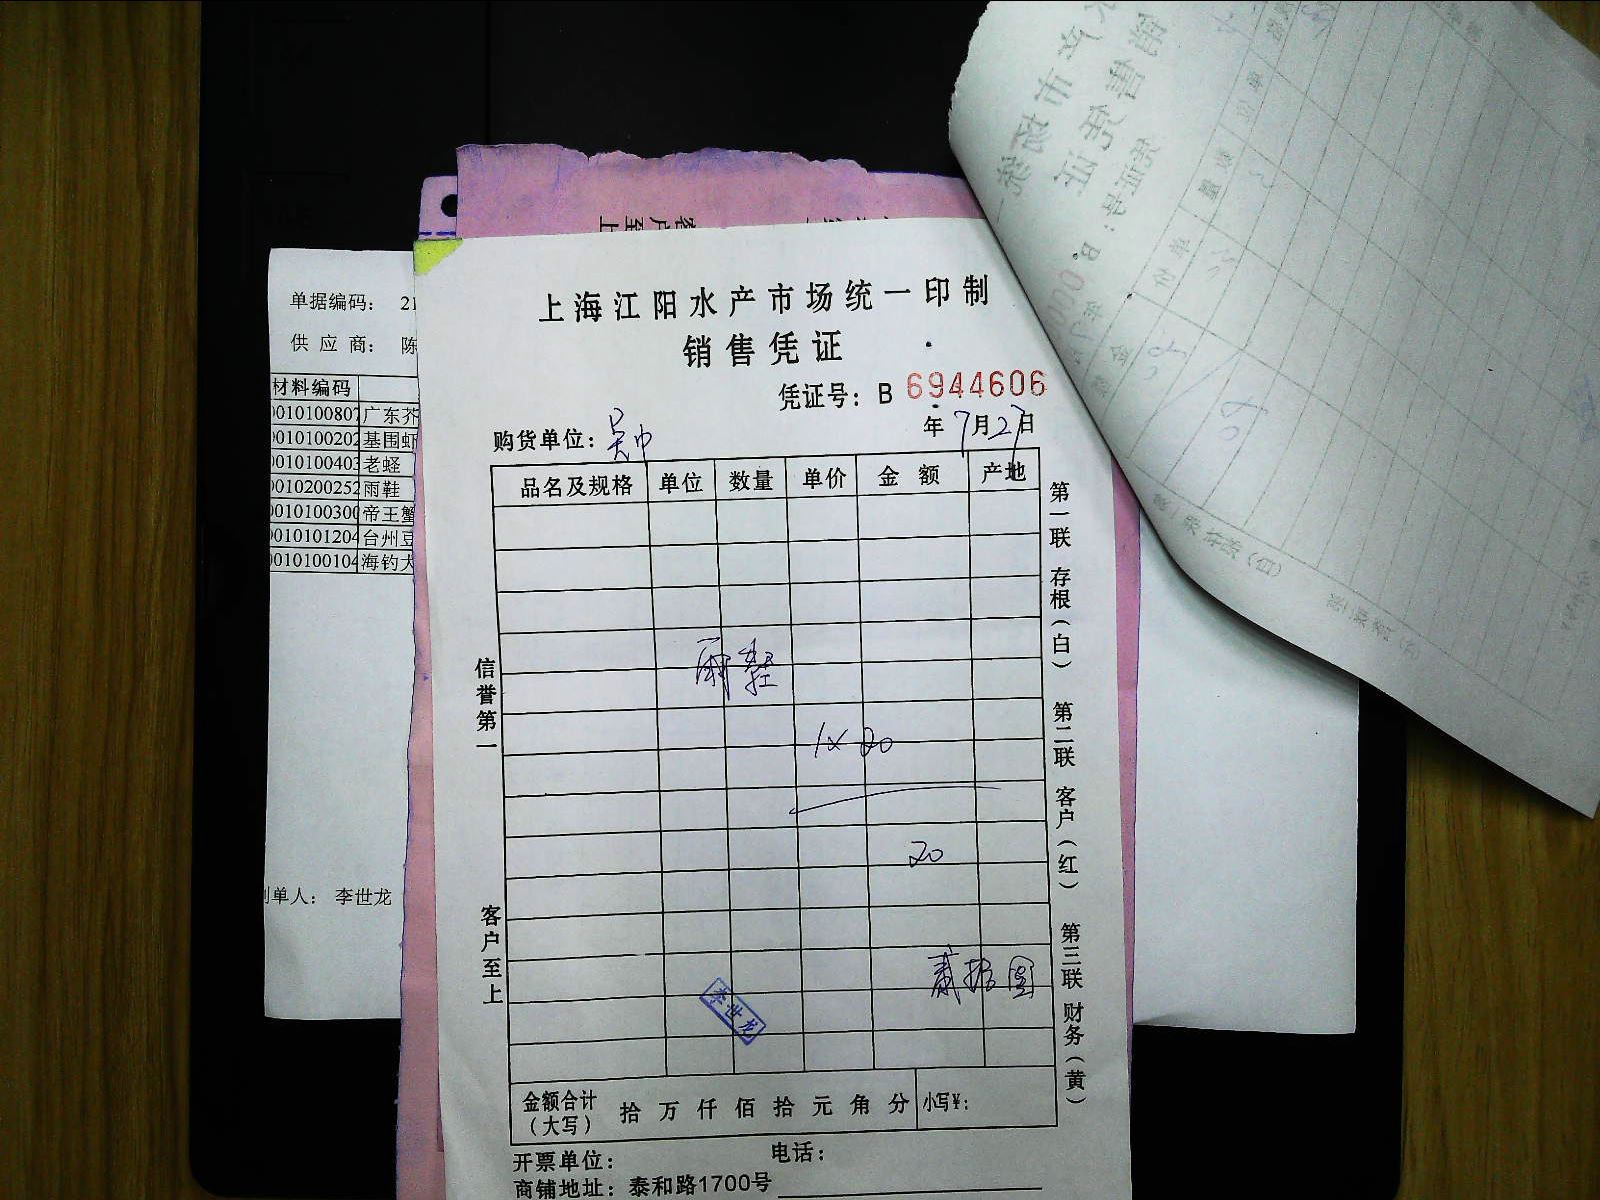 上海江阳水产市场统一印制
销售凭证
凭证号：B 6944606
购货单位：吴中
年7月27日
品名及规格 单位 数量 单价 金额 产地
雨鞋
1×20
20
贰拾圆
李世龙
金额合计（大写） 拾万仟佰拾元角分 小写¥：
开票单位： 电话：
商铺地址：泰和路1700号
信誉第一
客户至上
第一联 存根（白） 第二联 客户（红） 第三联 财务（黄）
单据编码： 21
供应商： 陈
材料编码
0010100807 广东芥
0010100202 基围虾
0010100403 老蛏
0010200252 雨鞋
0010100300 帝王蟹
0010101204 台州豆
0010100104 海钓大
制单人： 李世龙
客户至上